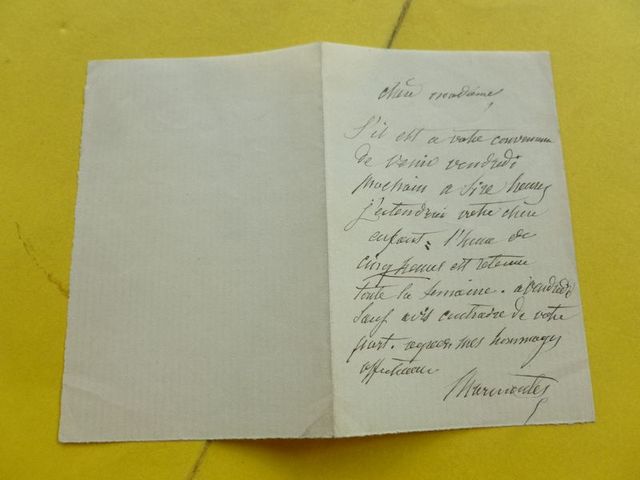 chère madame,
S'il est a votre convenance
de venir vendredi
prochain a Six heures
j'entendrai votre chère
enfant. l'heure de
cinq heures est retenue
toute la semaine. a vendredi
sauf avis contraire de votre
part. agréez mes hommages
affectueux
Marmontel